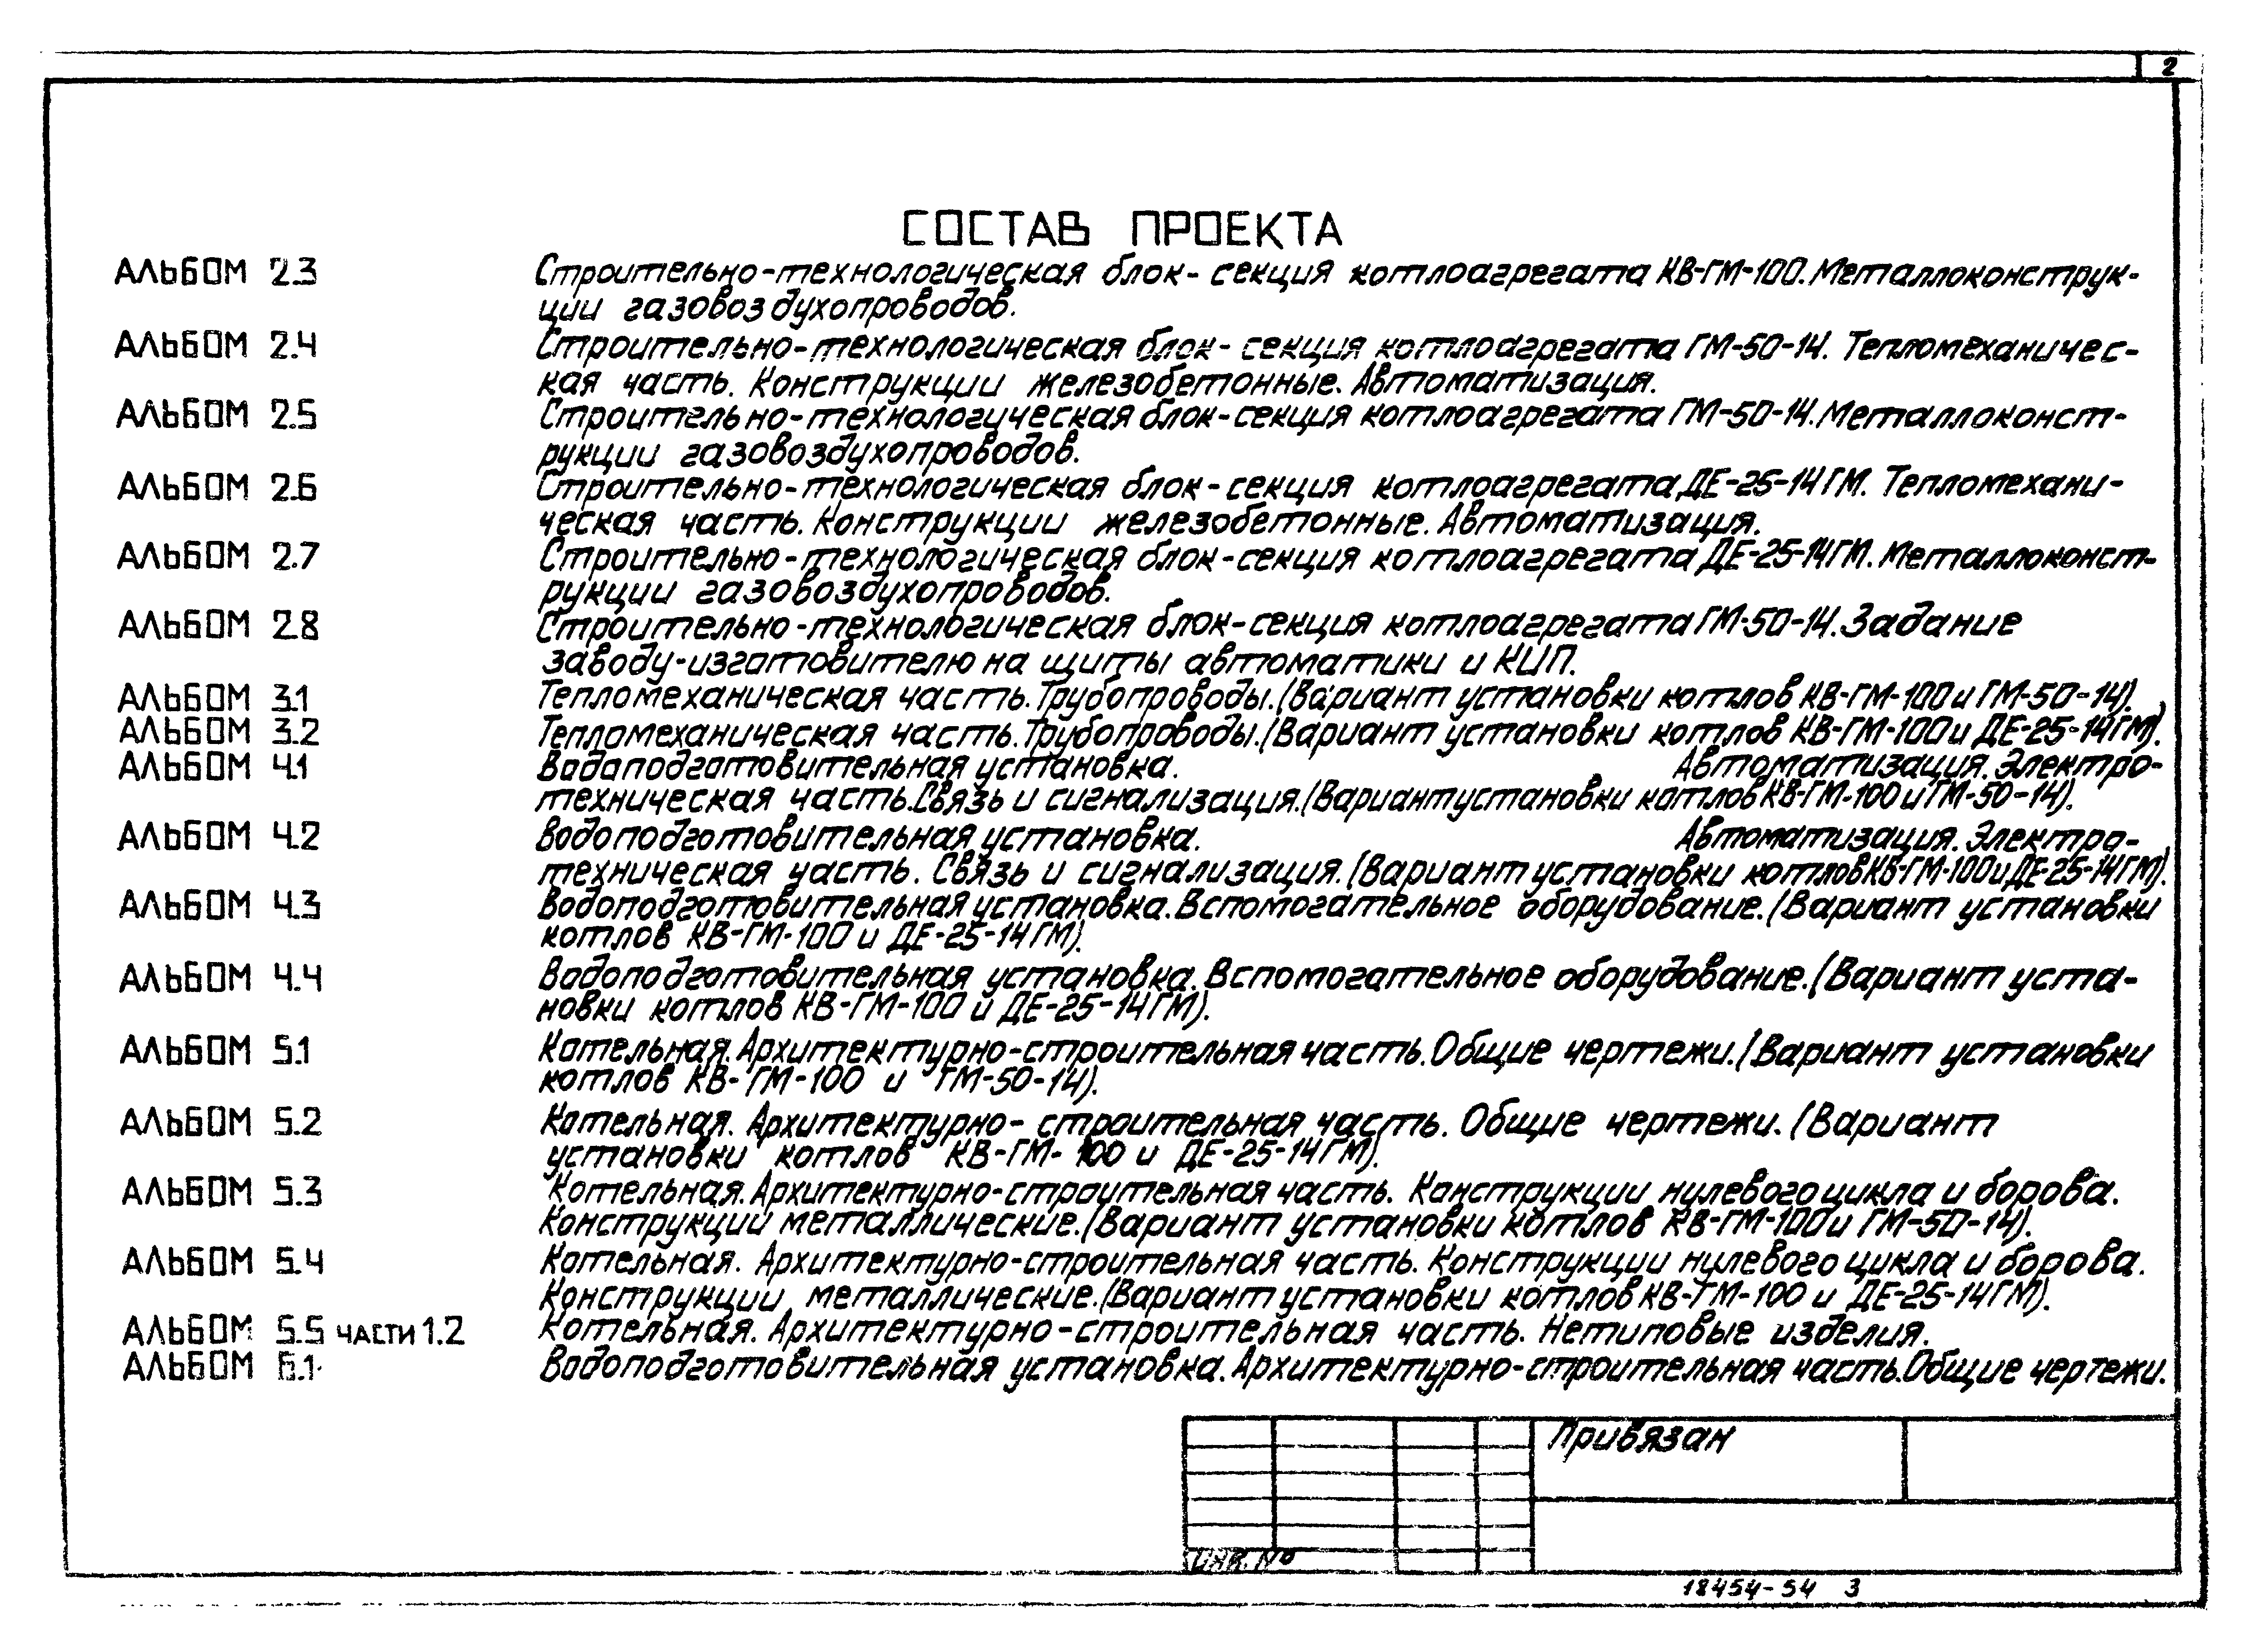 2
СОСТАВ ПРОЕКТА
АЛЬБОМ 2.3 Строительно-технологическая блок-секция котлоагрегата КВ-ГМ-100. Металлоконструк-
ции газовоздухопроводов.
АЛЬБОМ 2.4 Строительно-технологическая блок-секция котлоагрегата ГМ-50-14. Тепломеханичес-
кая часть. Конструкции железобетонные. Автоматизация.
АЛЬБОМ 2.5 Строительно-технологическая блок-секция котлоагрегата ГМ-50-14. Металлоконст-
рукции газовоздухопроводов.
АЛЬБОМ 2.6 Строительно-технологическая блок-секция котлоагрегата ДЕ-25-14ГМ. Тепломехани-
ческая часть. Конструкции железобетонные. Автоматизация.
АЛЬБОМ 2.7 Строительно-технологическая блок-секция котлоагрегата ДЕ-25-14ГМ. Металлоконст-
рукции газовоздухопроводов.
АЛЬБОМ 2.8 Строительно-технологическая блок-секция котлоагрегата ГМ-50-14. Задание
заводу-изготовителю на щиты автоматики и КИП.
АЛЬБОМ 3.1 Тепломеханическая часть. Трубопроводы. (Вариант установки котлов КВ-ГМ-100 и ГМ-50-14).
АЛЬБОМ 3.2 Тепломеханическая часть. Трубопроводы. (Вариант установки котлов КВ-ГМ-100 и ДЕ-25-14ГМ).
АЛЬБОМ 4.1 Водоподготовительная установка. Автоматизация. Электро-
техническая часть. Связь и сигнализация. (Вариант установки котлов КВ-ГМ-100 и ГМ-50-14).
АЛЬБОМ 4.2 Водоподготовительная установка. Автоматизация. Электро-
техническая часть. Связь и сигнализация. (Вариант установки котлов КВ-ГМ-100 и ДЕ-25-14ГМ).
АЛЬБОМ 4.3 Водоподготовительная установка. Вспомогательное оборудование. (Вариант установки
котлов КВ-ГМ-100 и ДЕ-25-14ГМ).
АЛЬБОМ 4.4 Водоподготовительная установка. Вспомогательное оборудование. (Вариант уста-
новки котлов КВ-ГМ-100 и ДЕ-25-14ГМ).
АЛЬБОМ 5.1 Котельная. Архитектурно-строительная часть. Общие чертежи. (Вариант установки
котлов КВ-ГМ-100 и ГМ-50-14).
АЛЬБОМ 5.2 Котельная. Архитектурно-строительная часть. Общие чертежи. (Вариант
установки котлов КВ-ГМ-100 и ДЕ-25-14ГМ).
АЛЬБОМ 5.3 Котельная. Архитектурно-строительная часть. Конструкции нулевого цикла и борова.
Конструкции металлические. (Вариант установки котлов КВ-ГМ-100 и ГМ-50-14).
АЛЬБОМ 5.4 Котельная. Архитектурно-строительная часть. Конструкции нулевого цикла и борова.
Конструкции металлические. (Вариант установки котлов КВ-ГМ-100 и ДЕ-25-14ГМ).
АЛЬБОМ 5.5 ЧАСТИ 1.2 Котельная. Архитектурно-строительная часть. Нетиповые изделия.
АЛЬБОМ 6.1 Водоподготовительная установка. Архитектурно-строительная часть. Общие чертежи.
Привязан
ИНВ. №
18454-54 3